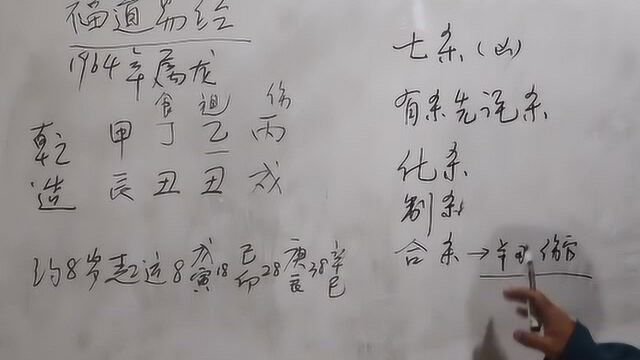 福道易经
1964年属龙
食 伤
乾 甲 丁 乙 丙
造 辰 丑 丑 戌
约8岁起运8戊寅18己卯28庚辰38辛巳
七杀(凶)
有杀先论杀
化杀
制杀
合杀→羊刃 伤官